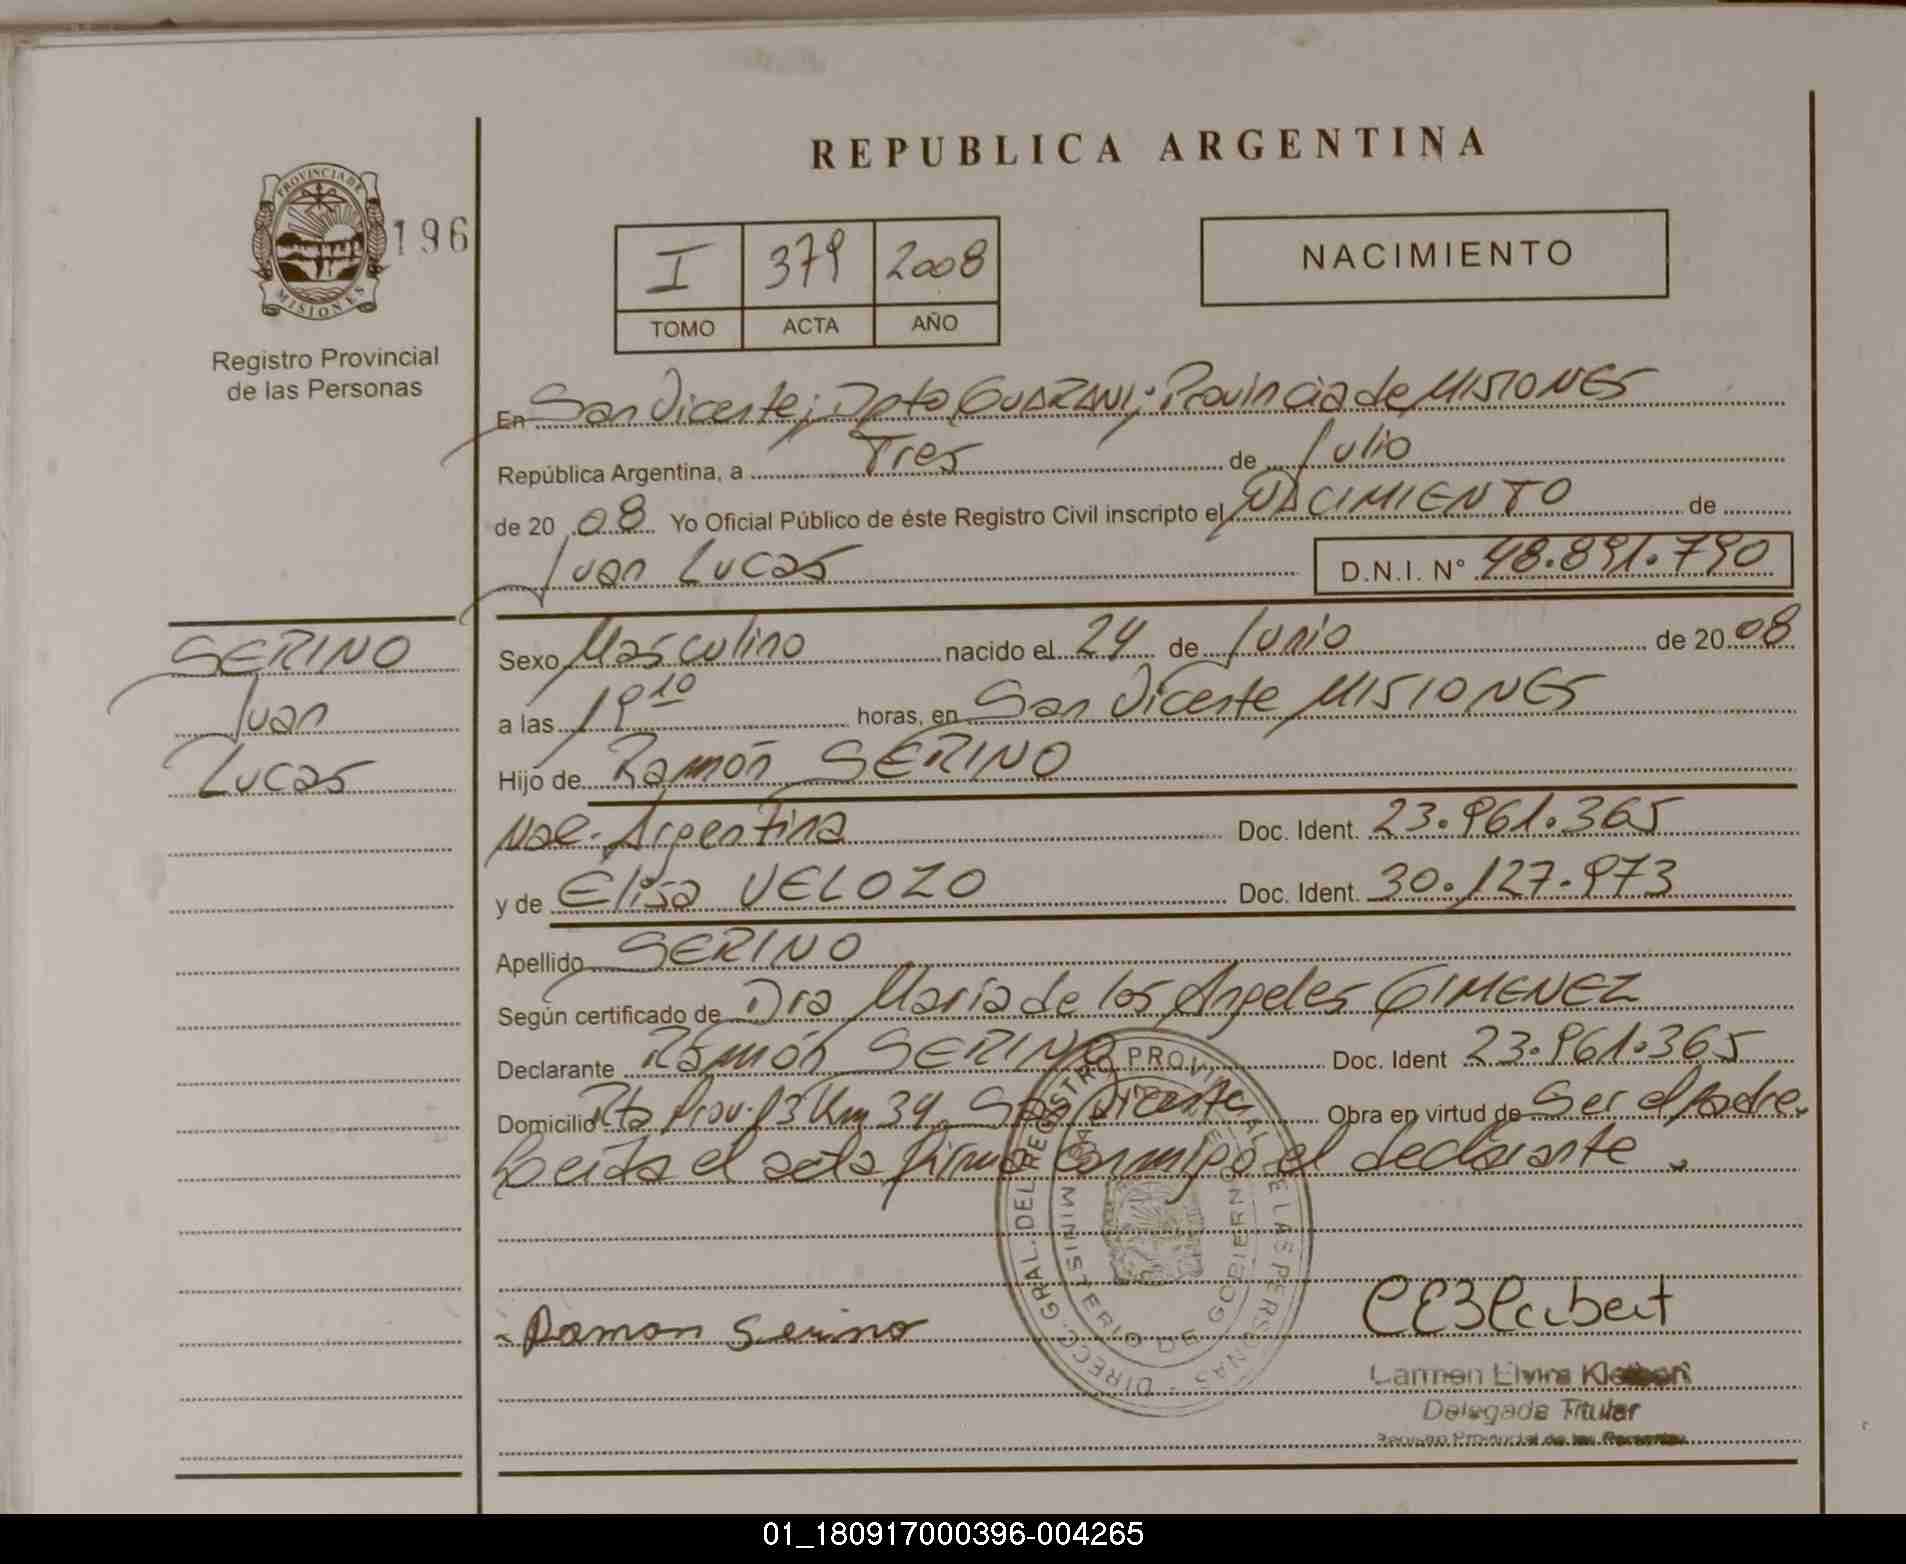 REPUBLICA ARGENTINA
PROVINCIA DE
MISIONES
196
Registro Provincial
de las Personas
I 379 2008
TOMO ACTA AÑO
NACIMIENTO
En San Vicente; Dpto GUARANI; Provincia de MISIONES
República Argentina, a Tres de Julio
de 20 08 Yo Oficial Público de éste Registro Civil inscripto el NACIMIENTO de
Juan Lucas D.N.I. N° 48.891.790
SERINO
Juan
Lucas
Sexo Masculino nacido el 24 de Junio de 20 08
a las 19 10 horas, en San Vicente MISIONES
Hijo de Ramón SERINO
Nac. Argentina Doc. Ident. 23.961.365
y de Elisa VELOZO Doc. Ident. 30.127.973
Apellido SERINO
Según certificado de Dra Maria de los Angeles GIMENEZ
Declarante Ramón SERINO Doc. Ident 23.961.365
Domicilio Rta Prov. 13 Km 34, San Vicente Obra en virtud de Ser el padre.
Leida el acta firma conmigo el declarante.
DIRECC. GRAL. DEL REGISTRO PROVINCIAL DE LAS PERSONAS
MINISTERIO DE GOBIERNO
Ramon Serino
Carmen Elvira
Delegada Titular
Registro Provincial de las Personas
01_180917000396-004265